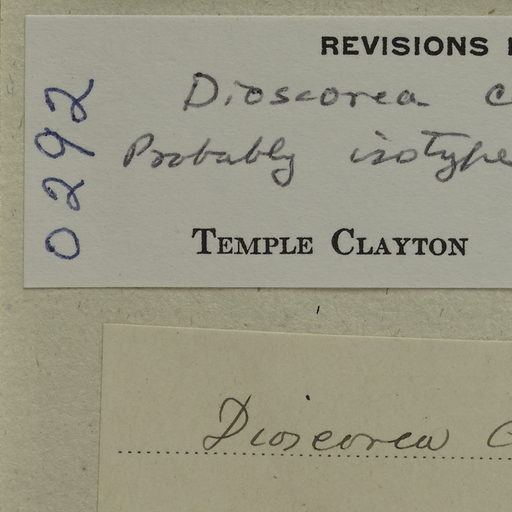 REVISIONS
Dioscorea
Probably isotype
TEMPLE CLAYTON
0292
Dioscorea